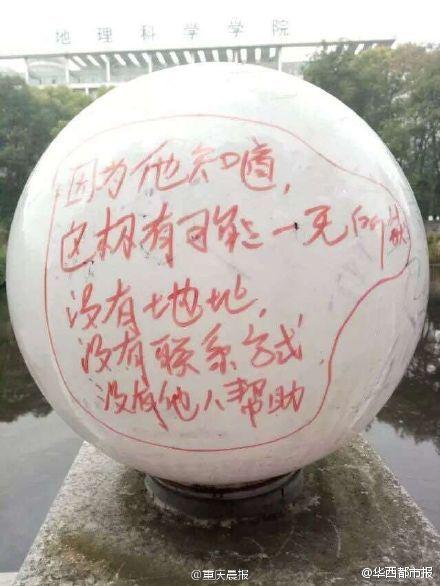 地理科学学院
因为他知道，
这极有可能一无所获
没有地址，
没有联系方式，
没有他人帮助
@重庆晨报
@华西都市报